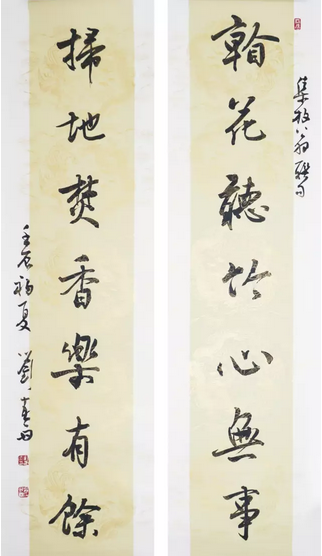 集放翁聯句
翰花聽竹心無事
掃地焚香樂有餘
壬辰初夏 劉